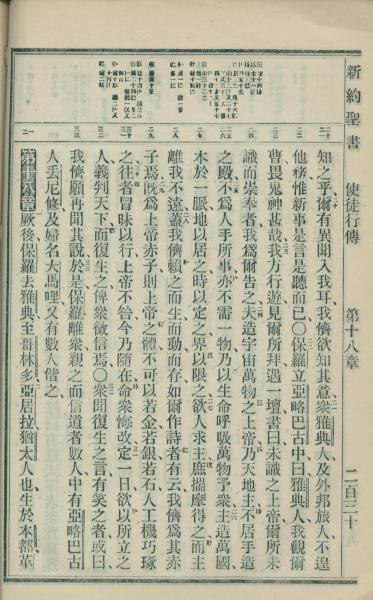 新約聖書 使徒行傳 第十八章 二百三十
知之乎爾有異聞入我耳我儕欲知其意衆雅典人及外邦旅人不遑
他務惟新事是言是聽而已〇保羅立亞略巴古中曰雅典人我觀爾
曹畏鬼神甚哉我方行遊見爾所拜遇一壇書曰未識之上帝爾所未
識而崇奉者我爲爾告之夫造宇宙萬物之上帝乃天地主不居手造
之殿不爲人手所事亦不需一物乃以生命呼吸萬物予衆主造萬國
本於一脈地以居之時以定之界以限之欲人求主庶揣摩得之而主
離我不遠蓋我儕賴之而生而動而存如爾作詩者有云我儕爲其赤
子焉旣爲上帝赤子則上帝之體不可以若金若銀若石人工機巧琢
之往者冒昧以行上帝不咎今乃隨在命衆悔改定一日欲以所立之
人義判天下而復生之俾衆徵信焉〇衆聞復生之言有笑之者或曰
我儕願再聞其說於是保羅離衆親之而信道者數人中有亞略巴古
人丟尼修及婦名大馬哩又有數人偕之
第十八章厥後保羅去雅典至哥林多亞居拉猶太人也生於本都革